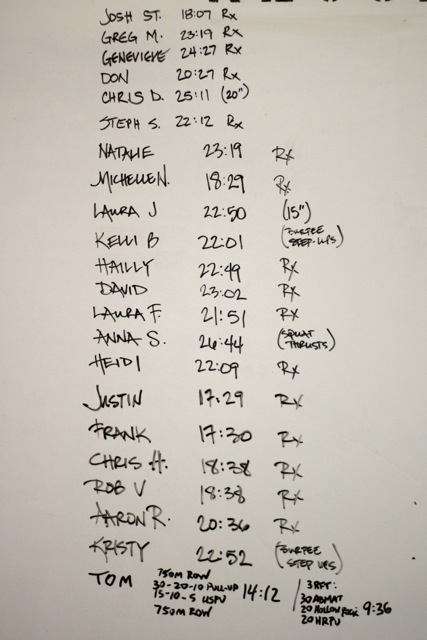 JOSH ST. 18:07 Rx
GREG M. 23:19 Rx
GENEVIEVE 24:27 Rx
DON 20:27 Rx
CHRIS D. 25:11 (20")
STEPH S. 22:12 Rx
NATALIE 23:19 Rx
MICHELLE N. 18:29 Rx
LAURA J 22:50 (15")
KELLI B 22:01 (BURPEE STEP-UPS)
HAILLY 22:49 Rx
DAVID 23:02 Rx
LAURA F. 21:51 Rx
ANNA S. 26:44 (SQUAT THRUSTS)
HEIDI 22:09 Rx
JUSTIN 17:29 Rx
FRANK 17:30 Rx
CHRIS H. 18:38 Rx
ROB V 18:38 Rx
AARON R. 20:36 Rx
KRISTY 22:52 (BURPEE STEP UPS)
TOM 750M ROW
30-20-10 PULL-UP
15-10-5 HSPU
750M ROW
14:12
3 RFT:
30 ABMAT
20 HOLLOW ROCK
20 HRPU
9:36